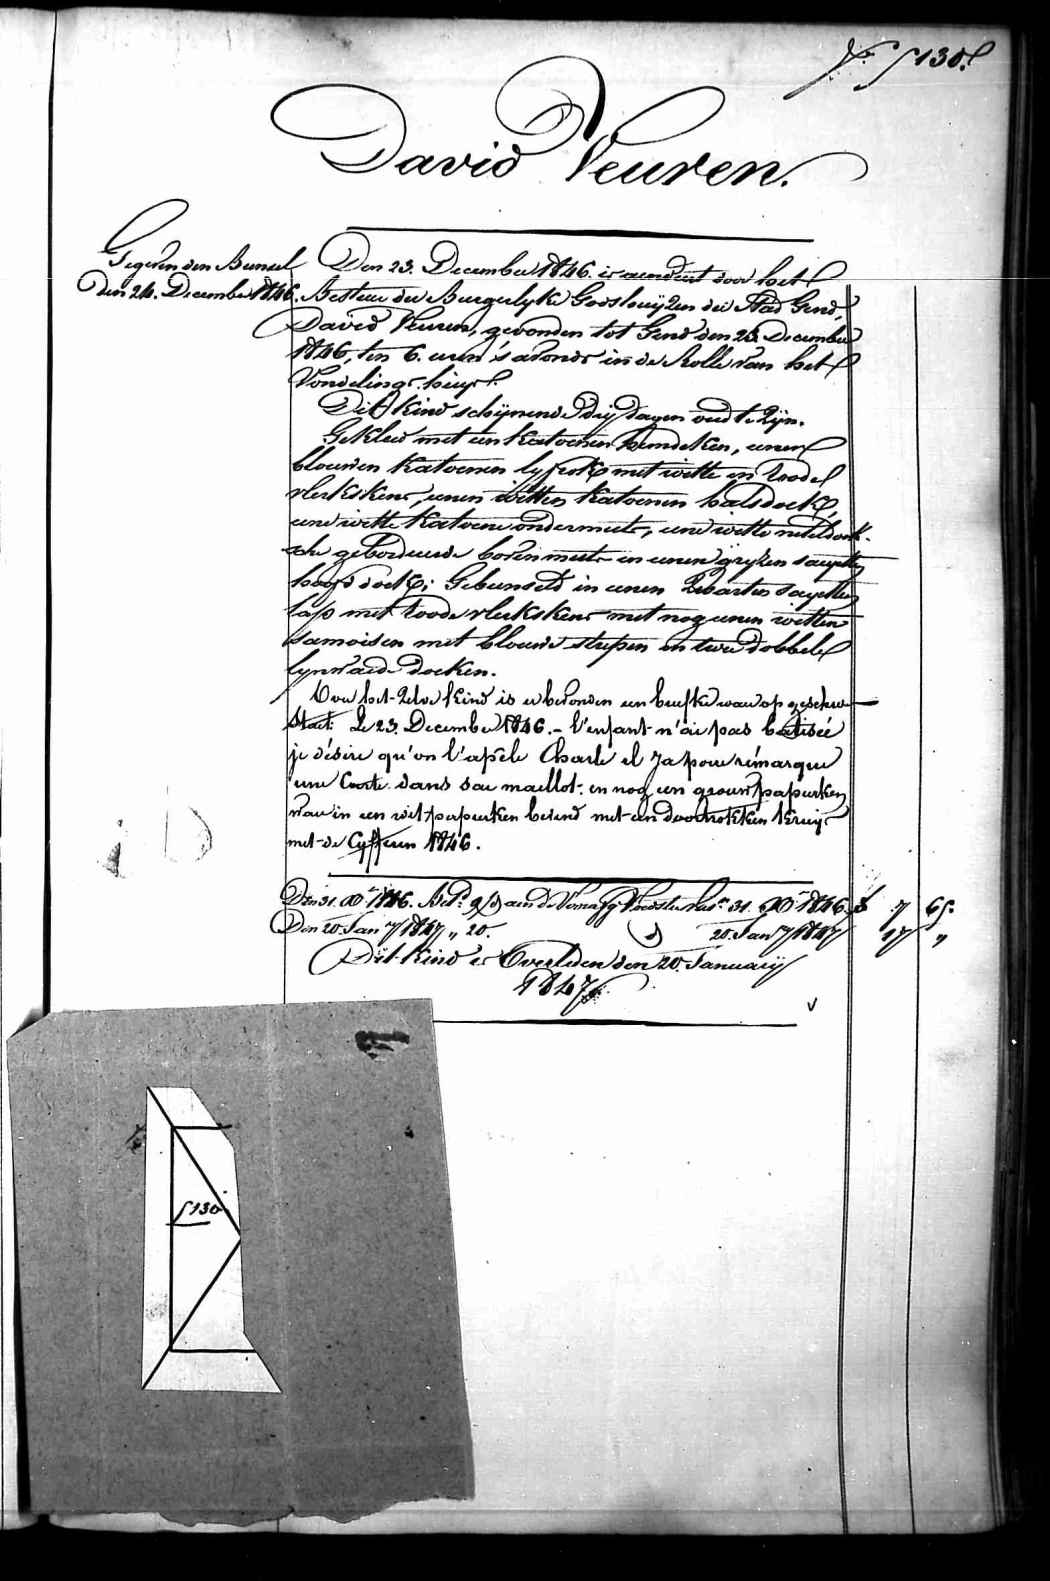 N.º 5130.
David Veuren.
Gegeven den Bunsel
den 24. December 1846.
Den 23. December 1846. is aenveert door het
Bestuer der Burgerlyke Godshuijzen der Stad Gend,
David Veuren, gevonden tot Gend den 23. December
1846, ten 6. uren 's avonds in de Rolle van het
Vondelings-huys.
Dit kind schijnende drij dagen oud te zijn.
Gekleed met een katoenen hemdeken, eenen
blouwen katoenen lyfrok met witte en roode
vlekskens, eenen witten katoenen halsdoek,
eene witte katoene ondermuts, eene witte neteldoek-
sche geborduerde bovenmuts en eenen gryzen sayetten
hoofddoek; Gebunseld in eenen zwarten sayetten
lap met roode vlekskens met nog eenen witten
samoisen met blouwe strepen en twee dobbele
lynwaede doeken.
Over het zelve kind is er bevonden een briefke waer op geschre-
staet: Le 23. December 1846. - l'enfant n'ai pas batisée
je désire qu'on l'apèle Charle el ya pour rémarque
une Carte dans sau maellot. en nog een graeuw papierken
waer in een wit papierken bevend met een doortrokken kruijs
met de Cyfferen 1846.
Den 31. Xbr 1846. Bet. 9 aen de 31. Xbr 1846. 7 65.
Den 20. Jan 1847 „ 20. 20. Jan 1847 17 „
Dit kind is Overleden den 20. Januarij
1847.
5130